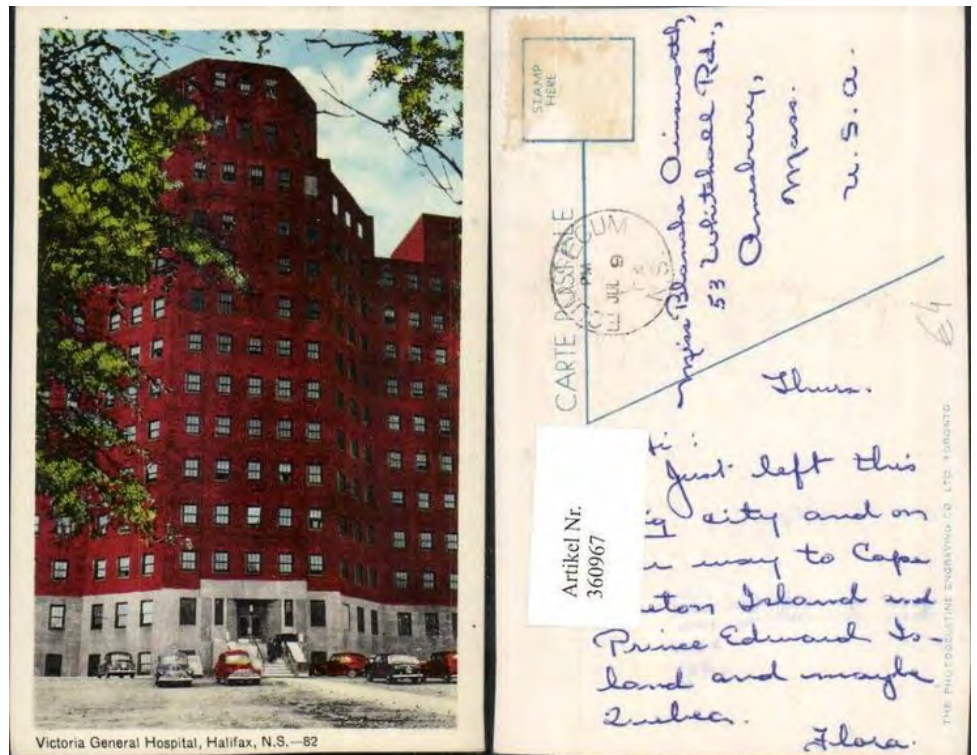 Victoria General Hospital, Halifax, N.S.—82
STAMP
HERE
CARTE POSTALE
ECUM
PM
JUL 9
N.S.
Miss Blanche Ainsworth,
53 Whitehall Rd.,
Amesbury,
Mass.
U.S.A.
€4
Thurs.
Artikel Nr.
360967
Just left this
city and on
way to Cape
Island and
Prince Edward Is-
land and maybe
Quebec.
Flora.
THE PHOTOGELATINE ENGRAVING CO. LTD. TORONTO